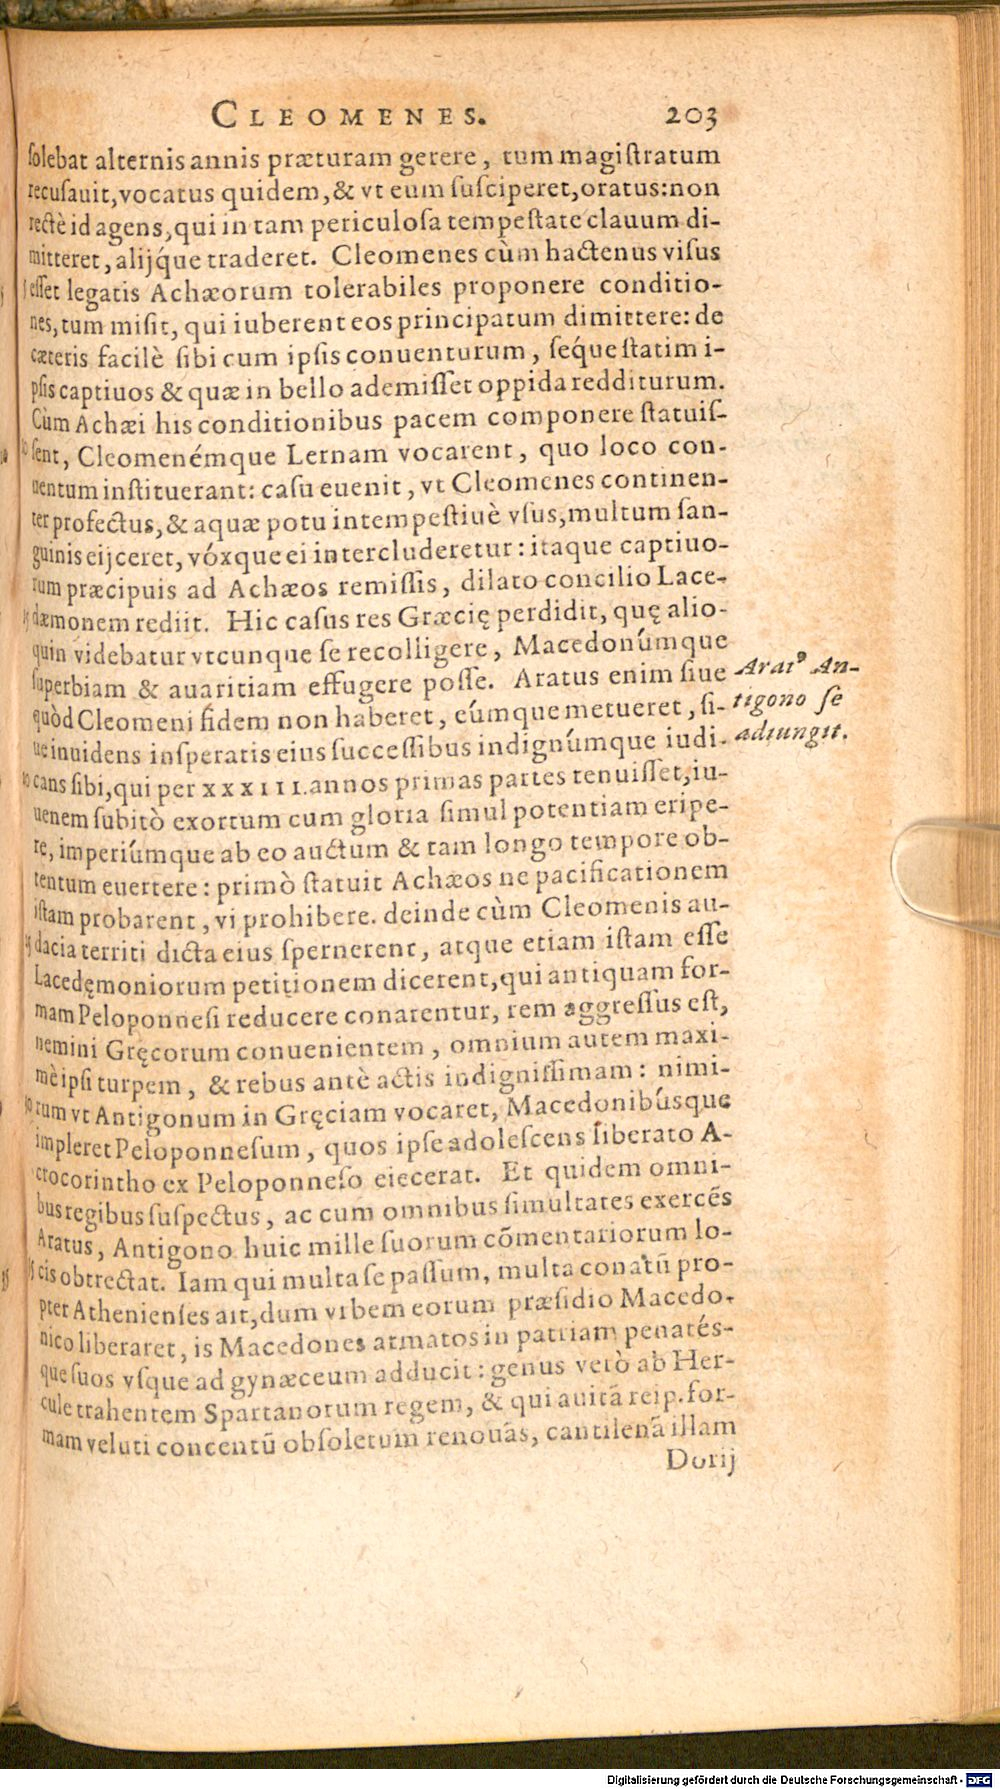 CLEOMENES. 203
ſolebat alternis annis præturam gerere, tum magiſtratum
recuſauit, vocatus quidem, & vt eum ſuſciperet, oratus: non
rectè id agens, qui in tam periculoſa tempeſtate clauum di-
mitteret, alijq́ue traderet. Cleomenes cùm hactenus viſus
eſſet legatis Achæorum tolerabiles proponere conditio-
nes, tum miſit, qui iuberent eos principatum dimittere: de
cæteris facilè ſibi cum ipſis conuenturum, ſeq́ue ſtatim i-
pſis captiuos & quæ in bello ademiſſet oppida redditurum.
Cùm Achæi his conditionibus pacem componere ſtatuiſ-
ſent, Cleomenémque Lernam vocarent, quo loco con-
uentum inſtituerant: caſu euenit, vt Cleomenes continen-
ter profectus, & aquæ potu intempeſtiuè vſus, multum ſan-
guinis eijceret, vóxque ei intercluderetur: itaque captiuo-
rum præcipuis ad Achæos remiſſis, dilato concilio Lace-
dæmonem rediit. Hic caſus res Græcię perdidit, quę alio-
quin videbatur vtcunque ſe recolligere, Macedonúmque
ſuperbiam & auaritiam effugere poſſe. Aratus enim ſiue
quòd Cleomeni fidem non haberet, eúmque metueret, ſi-
ue inuidens inſperatis eius ſucceſſibus indignúmque iudi-
cans ſibi, qui per XXXIII. annos primas partes tenuiſſet, iu-
uenem ſubitò exortum cum gloria ſimul potentiam eripe-
re, imperiúmque ab eo auctum & tam longo tempore ob-
tentum euertere: primò ſtatuit Achæos ne pacificationem
iſtam probarent, vi prohibere. deinde cùm Cleomenis au-
dacia territi dicta eius ſpernerent, atque etiam iſtam eſſe
Lacedęmoniorum petitionem dicerent, qui antiquam for-
mam Peloponneſi reducere conarentur, rem aggreſſus eſt,
nemini Gręcorum conuenientem, omnium autem maxi-
mè ipſi turpem, & rebus antè actis indigniſſimam: nimi-
rum vt Antigonum in Gręciam vocaret, Macedonibúsque
impleret Peloponneſum, quos ipſe adoleſcens liberato A-
crocorintho ex Peloponneſo eiecerat. Et quidem omni-
bus regibus ſuſpectus, ac cum omnibus ſimultates exercẽs
Aratus, Antigono huic mille ſuorum cõmentariorum lo-
cis obtrectat. Iam qui multa ſe paſſum, multa conatũ pro-
pter Athenienſes ait, dum vrbem eorum præſidio Macedo-
nico liberaret, is Macedones armatos in patriam penatés-
que ſuos vſque ad gynæceum adducit: genus verò ab Her-
cule trahentem Spartanorum regem, & qui auitã reip. for-
mam veluti concentũ obſoletum renouãs, cantilenã illam
Dorij
Arat⁹ An-
tigono ſe
adiungit.
5
10
15
20
25
30
35
Digitalisierung gefördert durch die Deutsche Forschungsgemeinschaft - DFG